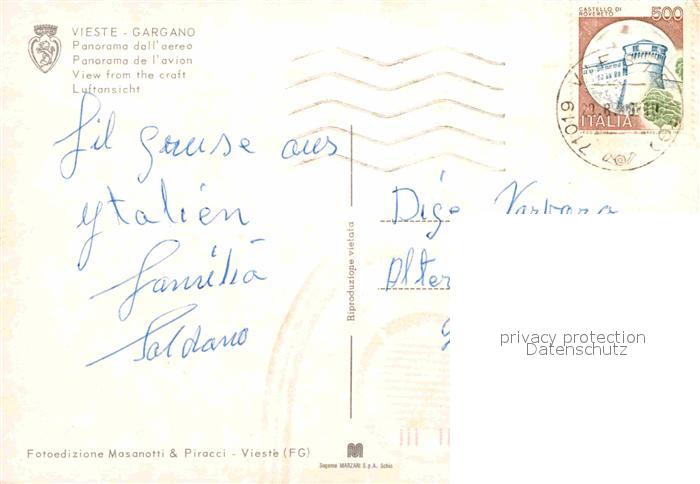 VIESTE - GARGANO
Panorama dall'aereo
Panorama de l'avion
View from the craft
Luftansicht
CASTELLO DI
ROVERETO
500
ITALIA
71019
fil gruse aus
ytalien
familia
Soldano
Riproduzione vietata
Alter
privacy protection
Datenschutz
Fotoedizione Masanotti & Piracci - Vieste (FG)
Sagome MARZARI S.p.A. Schio